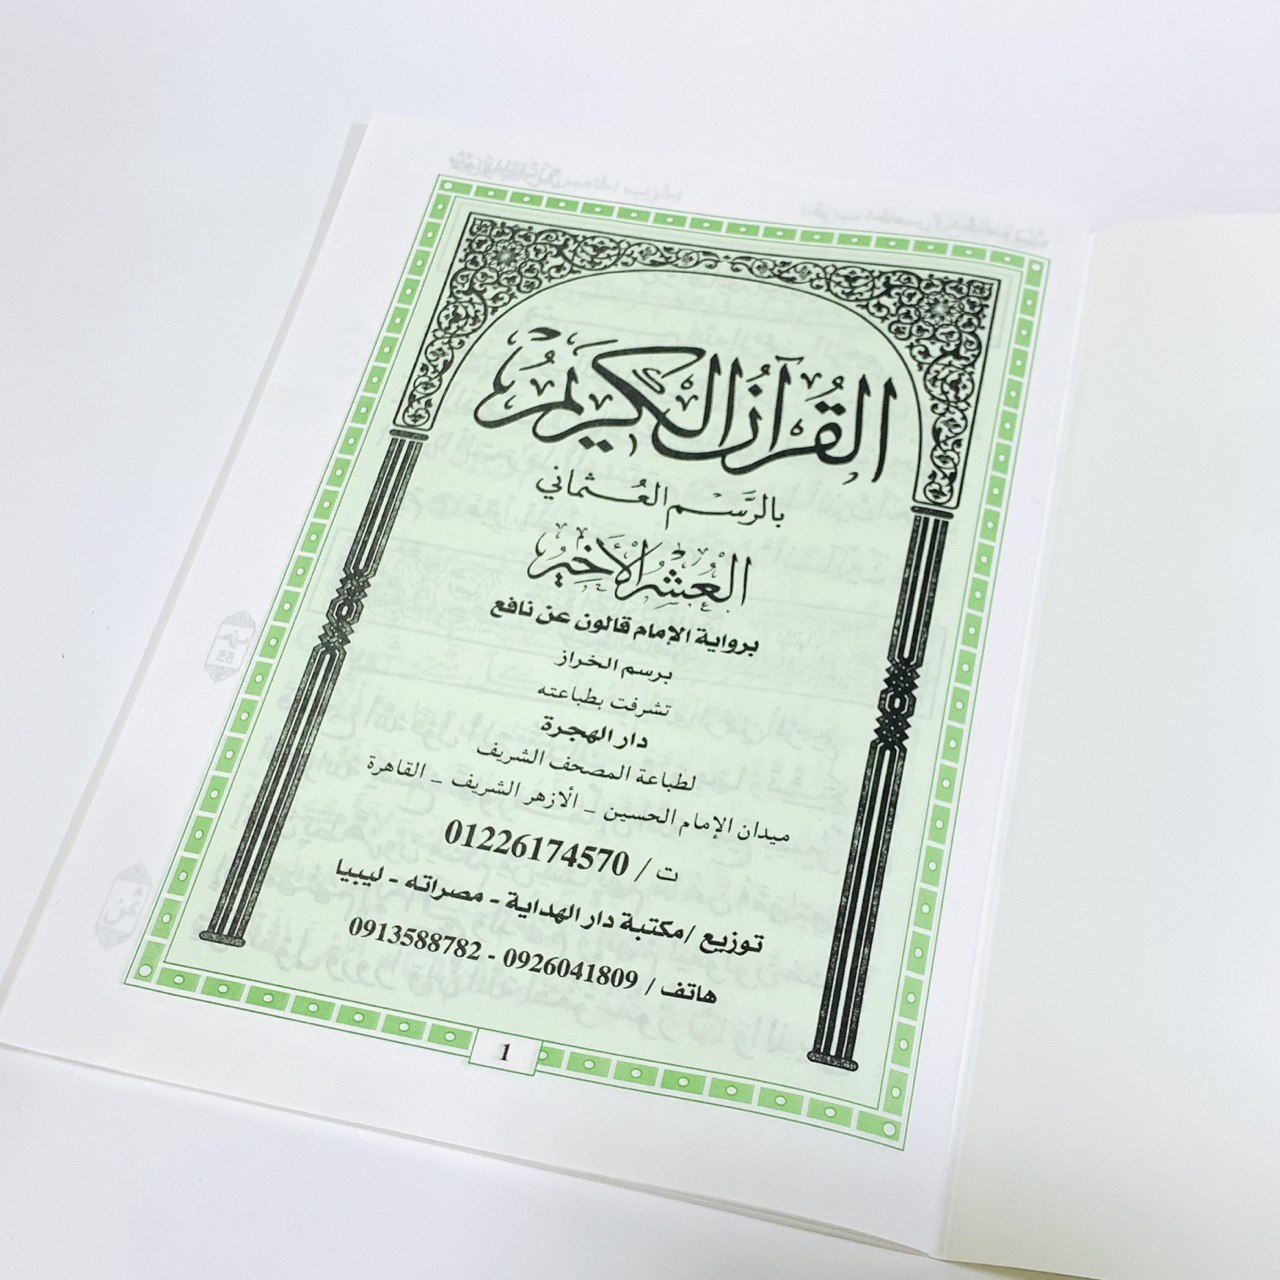 القُرآنُ الكَرِيمُ
بالرَّسْمِ العُثماني
العُشْرُ الأَخِيرُ
برواية الإمام قالون عن نافع
برسم الخراز
تشرفت بطباعته
دار الهجرة
لطباعة المصحف الشريف
ميدان الإمام الحسين - الأزهر الشريف - القاهرة
ت / 01226174570
توزيع / مكتبة دار الهداية - مصراته - ليبيا
هاتف / 0926041809 - 0913588782
1